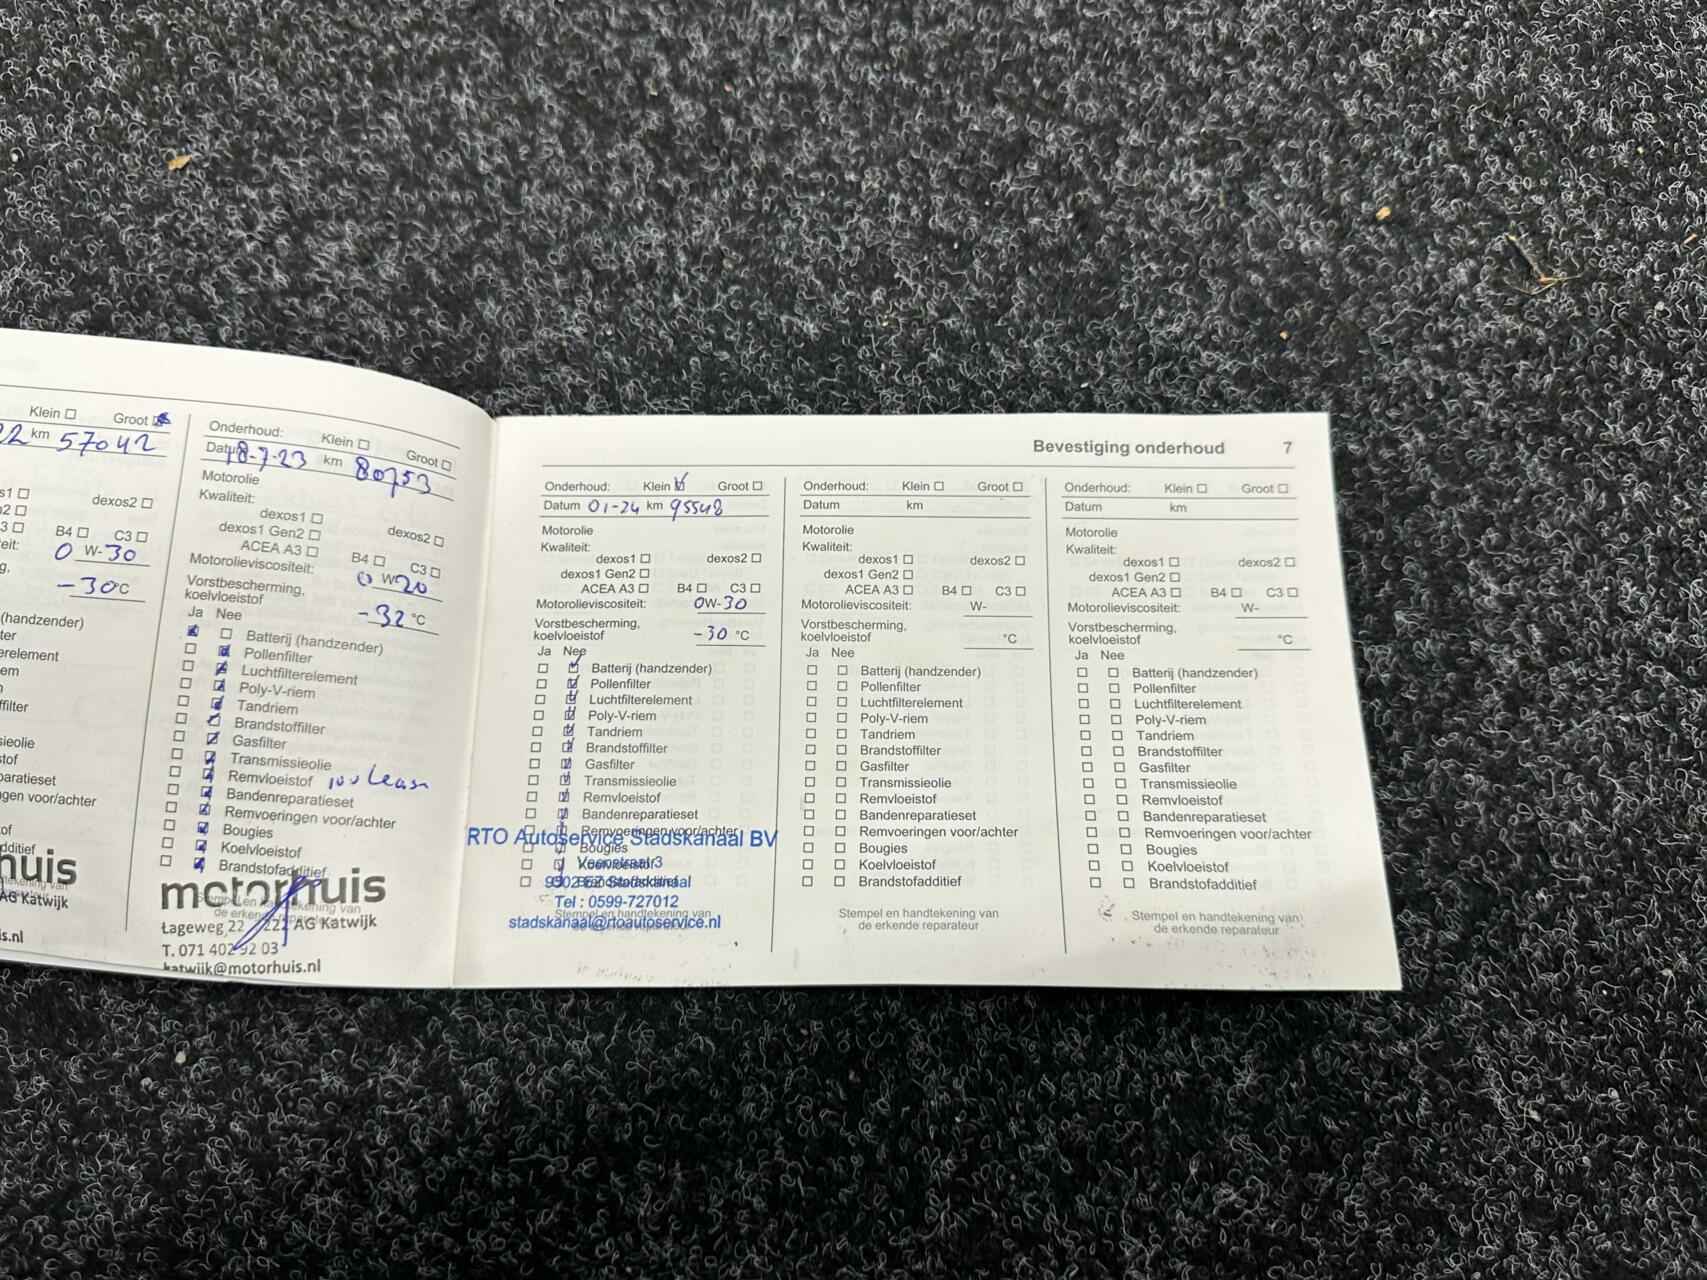 Klein Groot
22 km 57042
s1 dexos2
o2
3 B4 C3
eit: 0 W-30
g,
-30°C
(handzender)
ter
erelement
em
n
filter
ssieolie
stof
paratieset
ngen voor/achter
of
dditief
rhuis
AG Katwijk
is.nl
Onderhoud: Klein Groot
Datum 18-7-23 km 80753
Motorolie
Kwaliteit:
dexos1 dexos2
dexos1 Gen2
ACEA A3 B4 C3
Motorolieviscositeit: 0 W20
Vorstbescherming,
koelvloeistof -32 °C
Ja Nee
Batterij (handzender)
Pollenfilter
Luchtfilterelement
Poly-V-riem
Tandriem
Brandstoffilter
Gasfilter
Transmissieolie
Remvloeistof
Bandenreparatieset
Remvoeringen voor/achter
Bougies
Koelvloeistof
Brandstofadditief
motorhuis
Stempel en handtekening van
de erkende reparateur
Lageweg 22 - 2222 AG Katwijk
T. 071 402 92 03
katwijk@motorhuis.nl
Bevestiging onderhoud 7
Onderhoud: Klein Groot
Datum 01-24 km 95548
Motorolie
Kwaliteit:
dexos1 dexos2
dexos1 Gen2
ACEA A3 B4 C3
Motorolieviscositeit: 0W-30
Vorstbescherming,
koelvloeistof -30 °C
Ja Nee
Batterij (handzender)
Pollenfilter
Luchtfilterelement
Poly-V-riem
Tandriem
Brandstoffilter
Gasfilter
Transmissieolie
Remvloeistof
Bandenreparatieset
Remvoeringen voor/achter
RTO Autoservice Stadskanaal BV
Bougies
Koelvloeistof
Brandstofadditief
Stadskanaal
Tel : 0599-727012
Stempel en handtekening van
stadskanaal@rtoautoservice.nl
de erkende reparateur
Onderhoud: Klein Groot
Datum km
Motorolie
Kwaliteit:
dexos1 dexos2
dexos1 Gen2
ACEA A3 B4 C3
Motorolieviscositeit: W-
Vorstbescherming,
koelvloeistof °C
Ja Nee
Batterij (handzender)
Pollenfilter
Luchtfilterelement
Poly-V-riem
Tandriem
Brandstoffilter
Gasfilter
Transmissieolie
Remvloeistof
Bandenreparatieset
Remvoeringen voor/achter
Bougies
Koelvloeistof
Brandstofadditief
Stempel en handtekening van
de erkende reparateur
Onderhoud: Klein Groot
Datum km
Motorolie
Kwaliteit:
dexos1 dexos2
dexos1 Gen2
ACEA A3 B4 C3
Motorolieviscositeit: W-
Vorstbescherming,
koelvloeistof °C
Ja Nee
Batterij (handzender)
Pollenfilter
Luchtfilterelement
Poly-V-riem
Tandriem
Brandstoffilter
Gasfilter
Transmissieolie
Remvloeistof
Bandenreparatieset
Remvoeringen voor/achter
Bougies
Koelvloeistof
Brandstofadditief
Stempel en handtekening van
de erkende reparateur